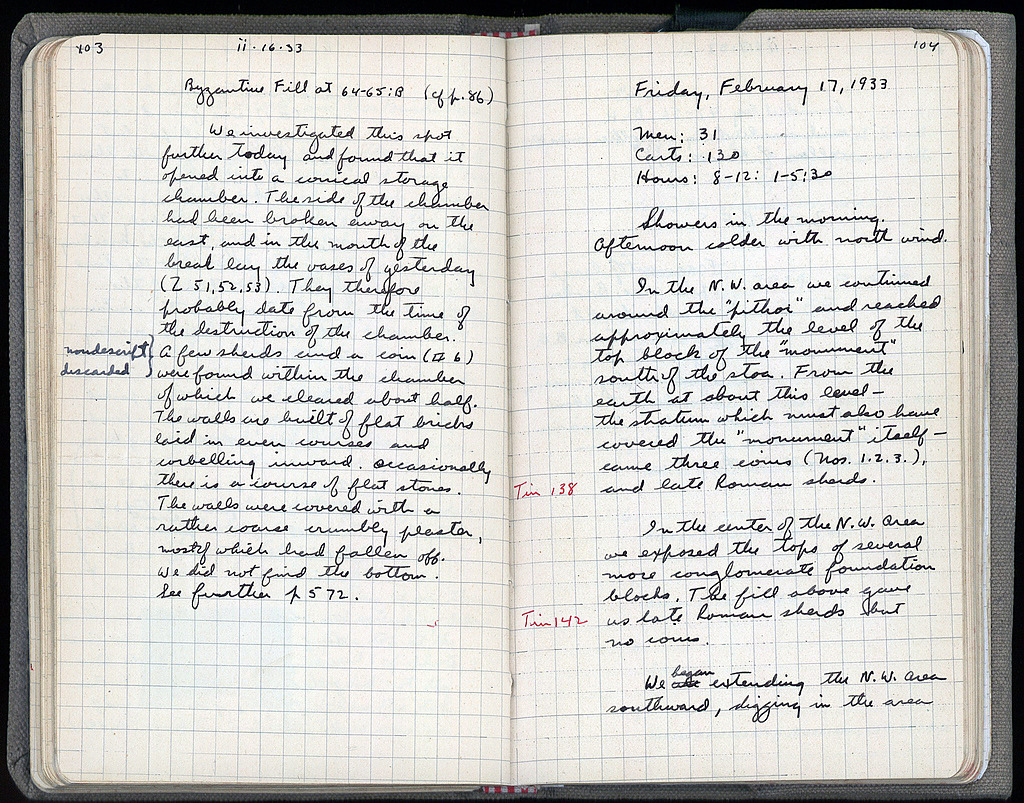 103
ii·16·33
Byzantine Fill at 64-65:B (cf p. 86)
We investigated this spot
further today and found that it
opened into a conical storage
chamber. The side of the chamber
had been broken away on the
east, and in the mouth of the
break lay the vases of yesterday
(Z 51,52,53). They therefore
probably date from the time of
the destruction of the chamber.
nondescript
discarded
A few sherds and a coin (# 6)
were found within the chamber
of which we cleared about half.
The walls are built of flat bricks
laid in even courses and
corbelling inward. Occasionally
there is a course of flat stones.
The walls were covered with a
rather coarse crumbly plaster,
most of which had fallen off.
We did not find the bottom.
See further p 572.
104
Friday, February 17, 1933
Men: 31
Carts: 130
Hours: 8-12: 1-5:30
Showers in the morning.
Afternoon colder with north wind.
In the N.W. area we continued
around the "pithoi" and reached
approximately the level of the
top block of the "monument"
south of the stoa. From the
earth at about this level —
the stratum which must also have
covered the "monument" itself —
came three coins (Nos. 1.2.3.),
Tin 138
and late Roman sherds.
In the center of the N.W. Area
we exposed the tops of several
more conglomerate foundation
blocks. The fill above gave
Tin 142
us late Roman sherds but
no coins.
We began extending the N.W. Area
southward, digging in the area